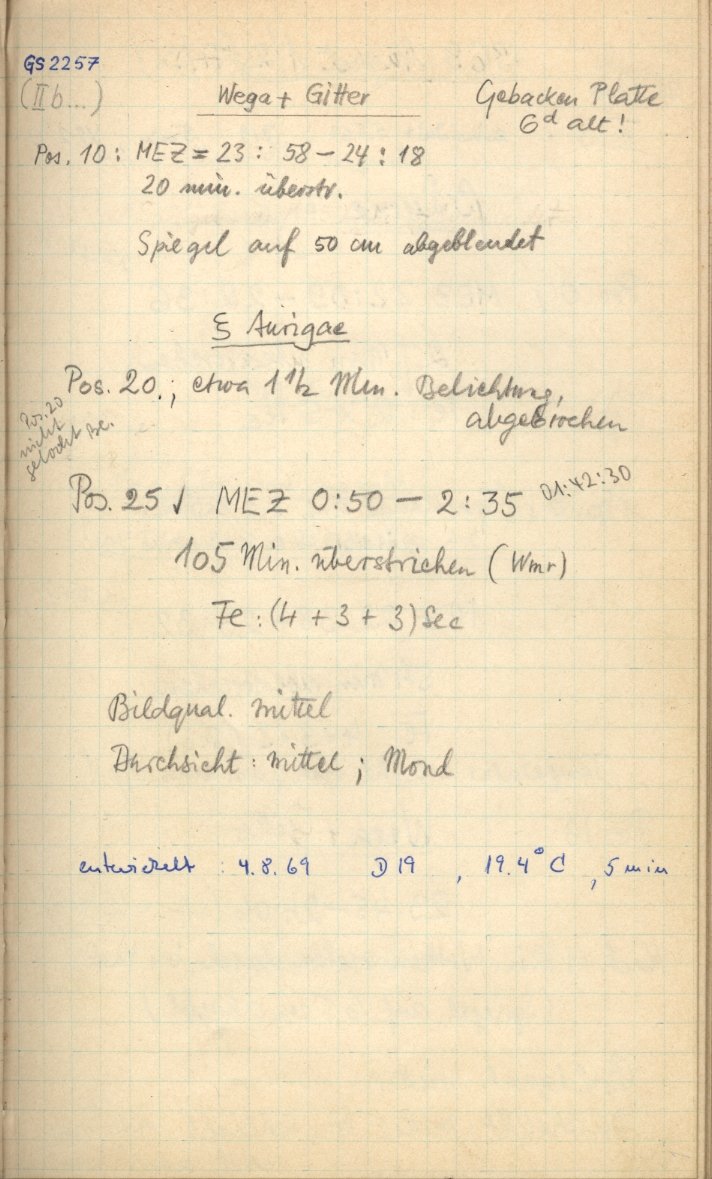 GS 2257
(IIb...) Wega + Gitter Gebacken Platte
6ᵈ alt!
Pos. 10: MEZ = 23 : 58 – 24 : 18
20 min. überstr.
Spiegel auf 50 cm abgeblendet
ξ Aurigae
Pos. 20.; etwa 1 1/2 Min. Belichtung,
abgebrochen
Pos. 20
nicht
gelocht Be.
Pos. 25 √ MEZ 0:50 – 2:35 01:42:30
105 Min. überstrichen (Wmr)
Fe: (4 + 3 + 3) Sec
Bildqual. mittel
Durchsicht: mittel; Mond
entwickelt : 4.8.69 D19 , 19.4° C , 5 min